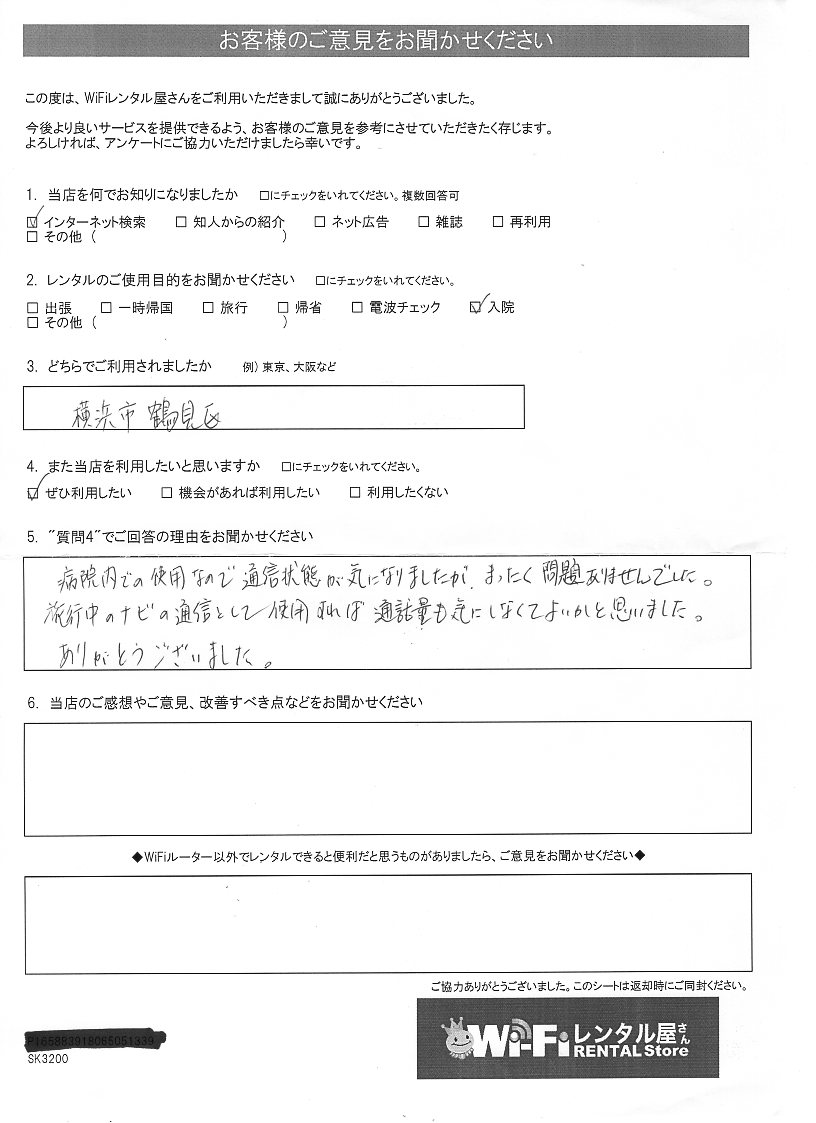 お客様のご意見をお聞かせください
この度は、WiFiレンタル屋さんをご利用いただきまして誠にありがとうございました。
今後より良いサービスを提供できるよう、お客様のご意見を参考にさせていただきたく存じます。
よろしければ、アンケートにご協力いただけましたら幸いです。
1. 当店を何でお知りになりましたか □にチェックをいれてください。複数回答可
☑ インターネット検索 □ 知人からの紹介 □ ネット広告 □ 雑誌 □ 再利用
□ その他 ( )
2. レンタルのご使用目的をお聞かせください □にチェックをいれてください。
□ 出張 □ 一時帰国 □ 旅行 □ 帰省 □ 電波チェック ☑ 入院
□ その他 ( )
3. どちらでご利用されましたか 例) 東京、大阪など
横浜市鶴見区
4. また当店を利用したいと思いますか □にチェックをいれてください。
☑ ぜひ利用したい □ 機会があれば利用したい □ 利用したくない
5. "質問4"でご回答の理由をお聞かせください
病院内での使用なので通信状態が気になりましたが、まったく問題ありませんでした。
旅行中のナビの通信として使用すれば通話量も気にしなくてよいかと思いました。
ありがとうございました。
6. 当店のご感想やご意見、改善すべき点などをお聞かせください
◆WiFiルーター以外でレンタルできると便利だと思うものがありましたら、ご意見をお聞かせください◆
ご協力ありがとうございました。このシートは返却時にご同封ください。
SK3200
Wi-Fiレンタル屋さん
RENTAL Store